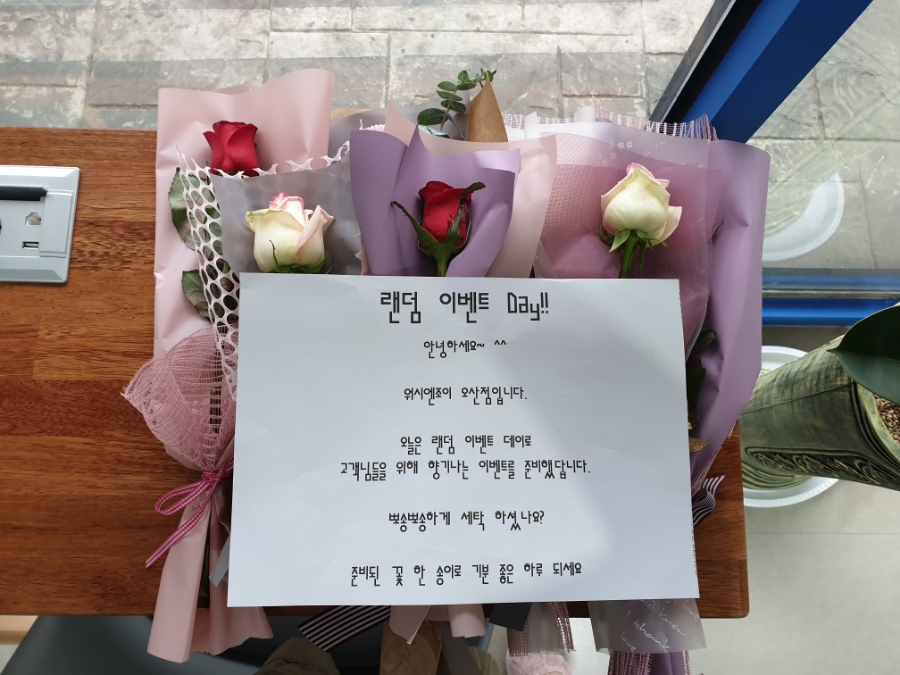 랜덤 이벤트 Day!!
안녕하세요~ ^^
워시엔조이 오산점입니다.
오늘은 랜덤 이벤트 데이로
고객님들을 위해 향기나는 이벤트를 준비했답니다.
뽀송뽀송하게 세탁 하셨나요?
준비된 꽃 한 송이로 기분 좋은 하루 되세요
thank